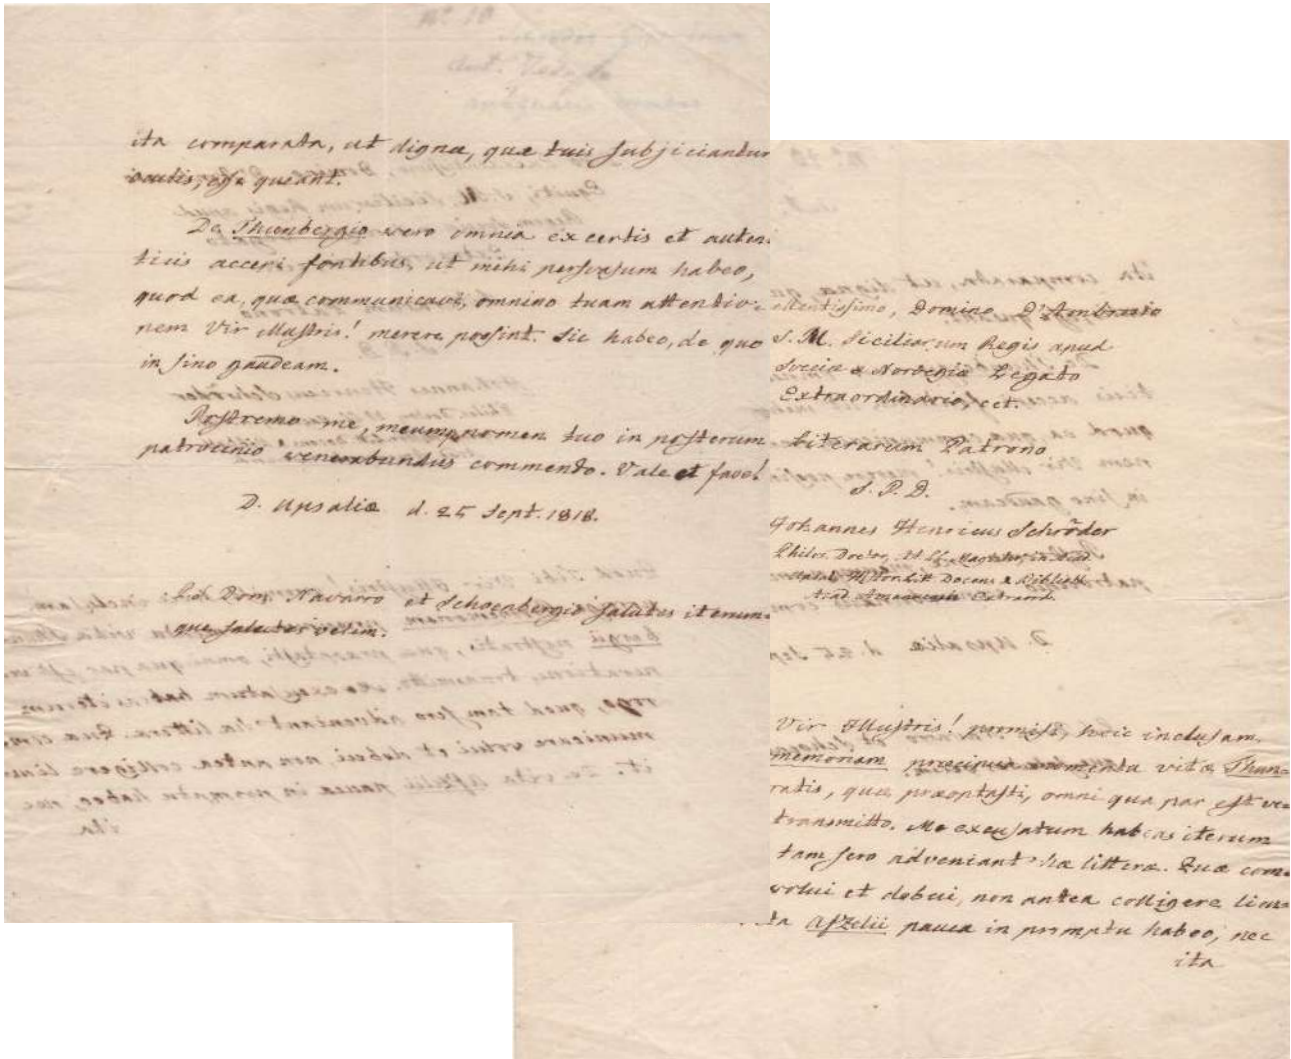 ita comparata, ut digna, quæ tuis subjiciantur
oculis, esse queant.
De Thunbergio vero omnia ex certis et auten-
ticis accepi fontibus, ut mihi persvasum habeo,
quod ea, quæ communicavi, omnino tuam attentio-
nem Vir Illustris! merere possint. Sic habeo, de quo
in sino gaudeam.
Postremo me, meumq nomen tuo in posterum
patrocinio venerabundus commendo. Vale et fave!
D. Upsaliæ d. 25 Sept. 1818.
Dom. Navarro et Schoenbergio salutes iterum-
que salutes velim.
ellentissimo, Domino D'Ambrosio
S. M. Siciliarum Regis apud
Sveciæ & Norvegiæ Legato
Extraordinario, cet.
Literarum Patrono
S. P. D.
Johannes Henricus Schröder
Philos. Doctor, Magister, in
Docens &
Acad.
Vir Illustris! permisi, heic inclusam
memoriam præcipua momenta vitæ Thun-
ratis, quæ præoptasti, omni qua par est ve-
transmitto. Me excusatum habeas iterum
tam sero adveniant hæ litteræ. Quæ com-
volui et debui, non antea colligere licu-
ta Afzelii pauca in promptu habeo, nec
ita